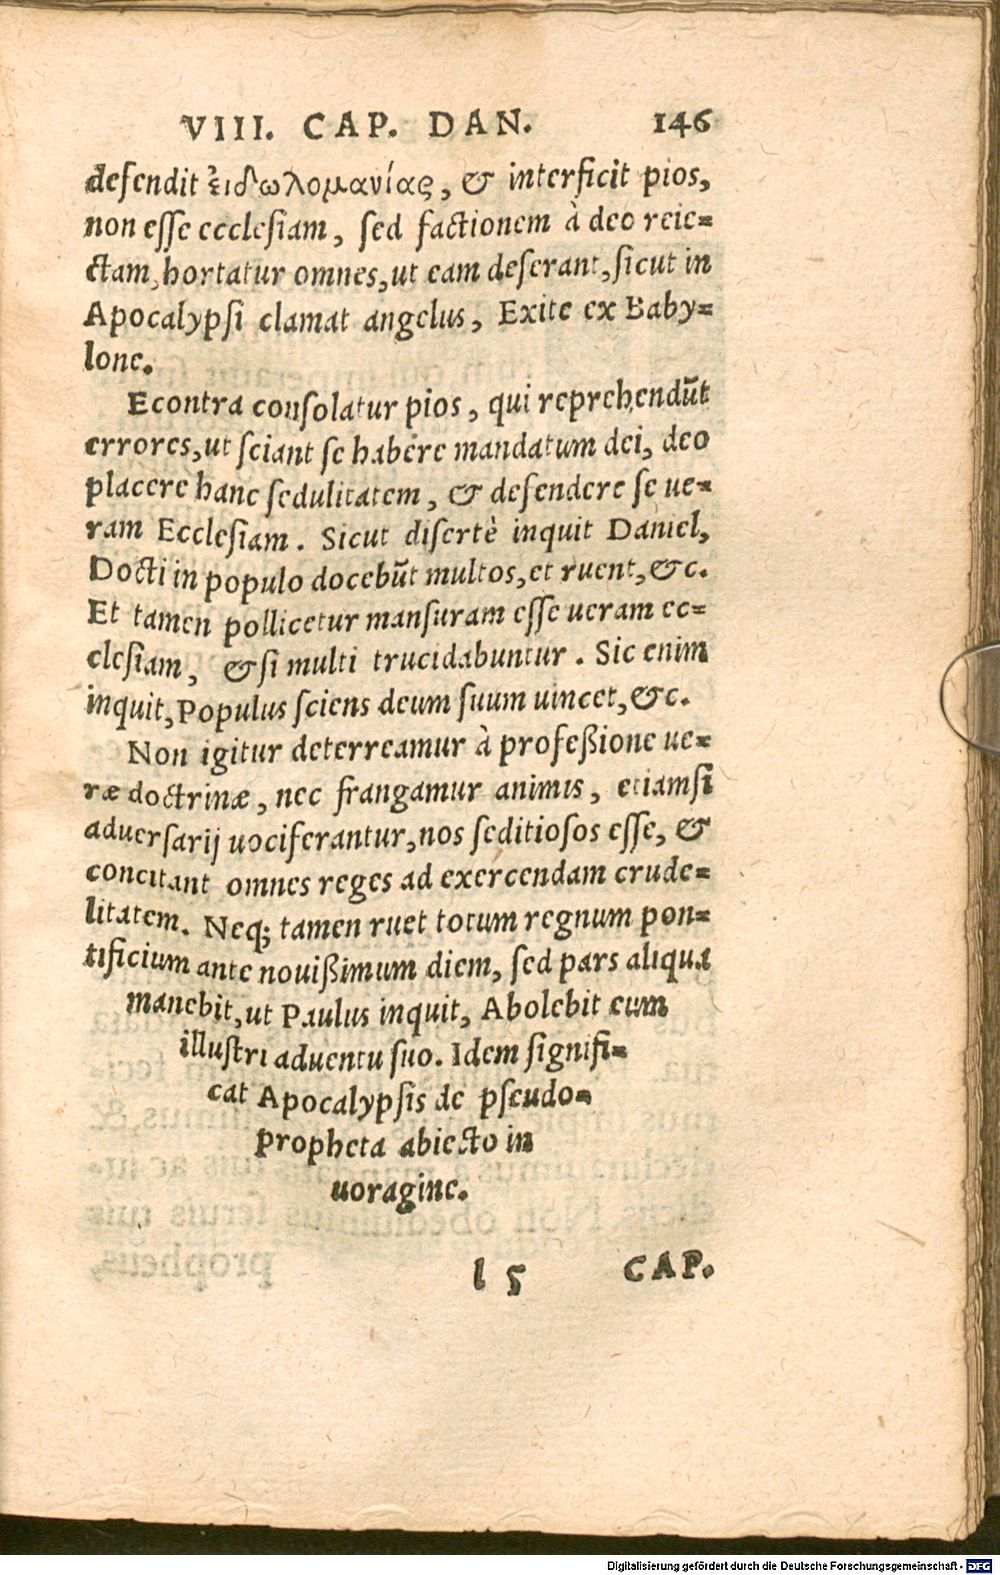 VIII. CAP. DAN. 146
defendit ἐιδωλομανίας, & interficit pios,
non esse ecclesiam, sed factionem à deo reie=
ctam, hortatur omnes, ut eam deserant, sicut in
Apocalypsi clamat angelus, Exite ex Baby=
lone.
Econtra consolatur pios, qui reprehendūt
errores, ut sciant se habere mandatum dei, deo
placere hanc sedulitatem, & defendere se ue=
ram Ecclesiam. Sicut disertè inquit Daniel,
Docti in populo docebūt multos, et ruent, &c.
Et tamen pollicetur mansuram esse ueram ec=
clesiam, & si multi trucidabuntur. Sic enim
inquit, Populus sciens deum suum uincet, &c.
Non igitur deterreamur à profeßione ue=
ræ doctrinæ, nec frangamur animis, etiamsi
aduersarij uociferantur, nos seditiosos esse, &
concitant omnes reges ad exercendam crude=
litatem. Neq; tamen ruet totum regnum pon=
tificium ante nouißimum diem, sed pars aliqua
manebit, ut Paulus inquit, Abolebit eum
illustri aduentu suo. Idem signifi=
cat Apocalypsis de pseudo=
propheta abiecto in
uoragine.
l 5 CAP.
Digitalisierung gefördert durch die Deutsche Forschungsgemeinschaft - DFG